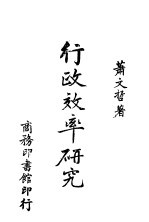 蕭文哲著
行政效率研究
商務印書館印行